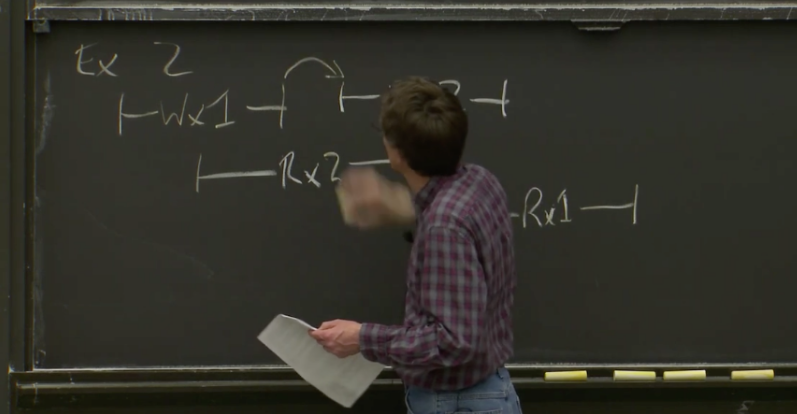 Ex 2
Wx1
Rx2
Rx1